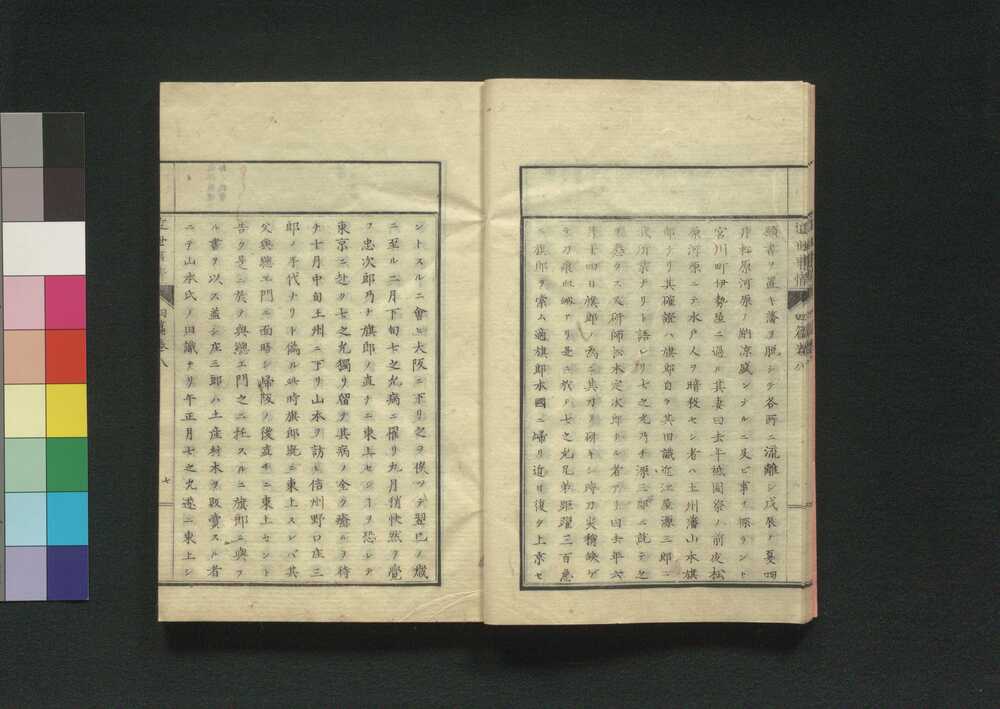 願書ヲ置キ藩ヲ脱シテ各所ニ流離シ戊辰ノ夏四
月松原河原ノ納涼盛ンナルニ及ビ事ヲ探ラント
宮川町伊勢屋ニ過ル其妻曰去年祗園祭ノ前夜松
原河原ニテ水戸人ヲ暗殺セシ者ハ土州藩山本旗
郎ナリ其確證ハ旗郎自ラ其旧識近江屋源三郎ニ
我所業ナリト語レリ七之允乃チ源三郎ニ就テ之
ヲ懇クス又研師松本定次郎ナル者アリ曰去年六
月十四日旗郎ノ為ニ其刀ヲ研キシ時刀尖稍缺ケ
テ刀痕血衂アリ是ニ於テ七之允兄弟距躍三百急
ニ旗郎ヲ索ム適旗郎本國ニ帰リ近日復タ上京セ
近世事情 四篇巻八
ントスルニ會ヒ大阪ニ下リ之ヲ俟ツテ翌巳ノ歳
ニ至ル二月下旬七之允病ニ罹リ九月稍快然ヲ覺
フ忠次郎乃チ旗郎ノ直チニ東上センヿヲ恐レテ
東京ニ赴ク七之允獨リ留テ其病ノ全ク癒ルヲ待
チ十月中旬土州ニ下リ山本ヲ訪ヒ信州野口庄三
郎ノ手代ナリト偽ル此時旗郎既ニ東上スレバ其
父與惣エ門ニ面晤シ帰阪ノ後直チニ東上セント
告ク是ニ於テ與惣エ門之ニ托スルニ旗郎ニ與フ
ル書ヲ以ス蓋シ庄三郎ハ土産材木ヲ販賣スル者
ニテ山本氏ノ旧識ナリ午正月七之允遂ニ東上シ
近世事情 四篇巻八
七